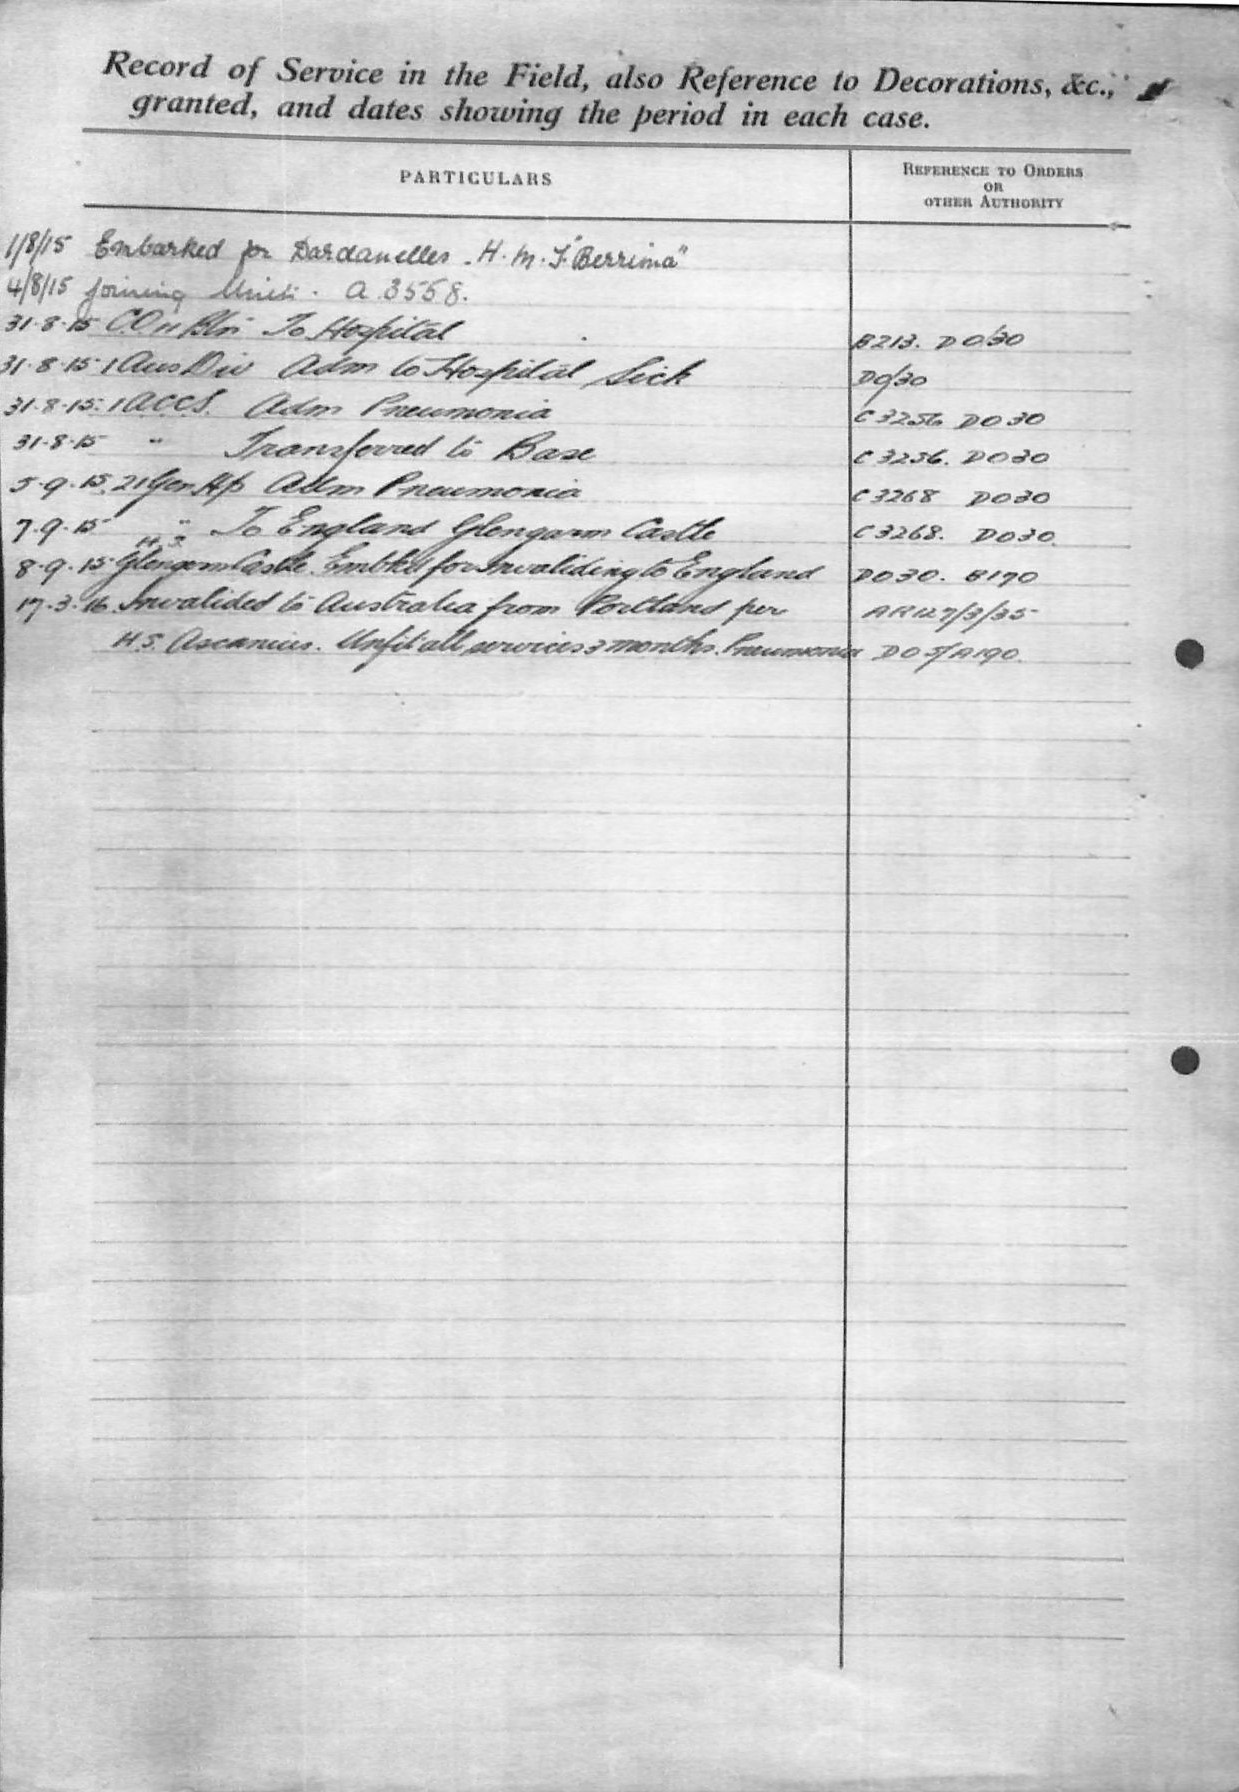 Record of Service in the Field, also Reference to Decorations, &c.,
granted, and dates showing the period in each case.
PARTICULARS
REFERENCE TO ORDERS
OR
OTHER AUTHORITY
1/8/15 Embarked for Dardanelles. H.M.T. "Berrima"
4/8/15 joining Unit. A 3558.
31.8.15 C.O. 11 Bln To Hospital B213. DO/30
31.8.15 1 Aus Div Adm to Hospital Sick DO/30
31.8.15. 1 A.C.C.S. Adm Pneumonia C 3256 DO30
31.8.15 " Transferred to Base C 3256. DO30
5.9.15. 21 Gen Hp Adm Pneumonia C 3268 DO30
7.9.15 " To England Glengorm Castle C 3268. DO30.
H.S.
8.9.15 Glengorm Castle. Embked for invaliding to England DO30. B170
17.3.16. Invalided to Australia from Portland per AR127/3/35
H.S. Ascanius. Unfit all services 3 months. Pneumonia DO5/A190.